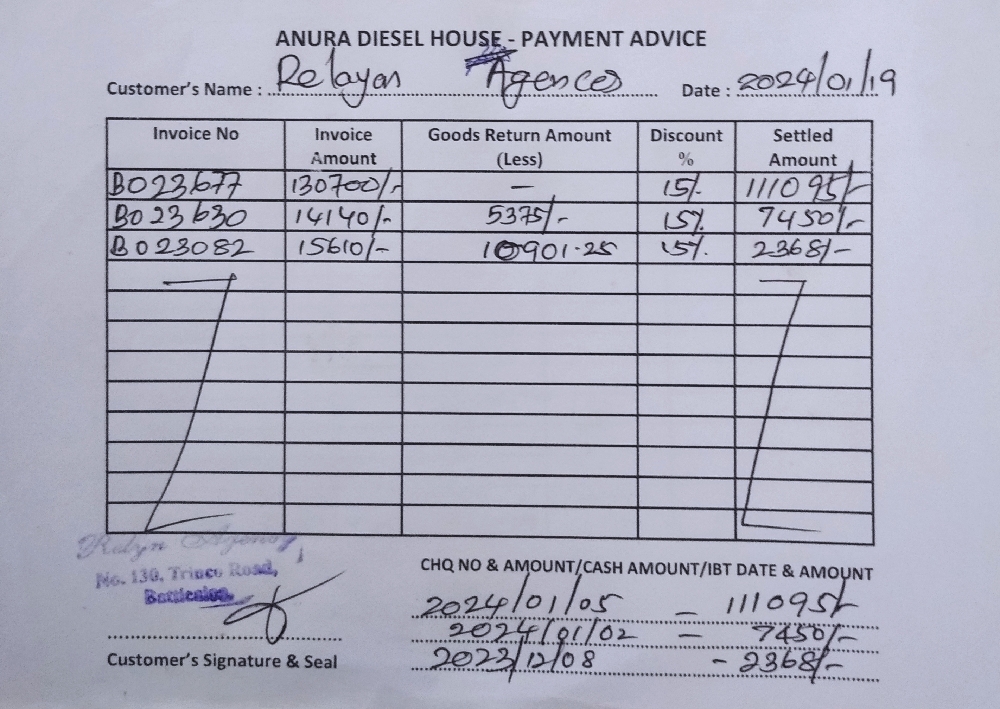 ANURA DIESEL HOUSE - PAYMENT ADVICE
Customer's Name : Relayan Agences Date : 2024/01/19
Invoice No Invoice Amount Goods Return Amount (Less) Discount % Settled Amount
B023677 130700/- — 15/. 111095/-
B023630 14140/- 5375/- 15%. 7450/-
B023082 15610/- 10901.25 15%. 2368/-
No. 130, Trinco Road,
Batticaloa.
CHQ NO & AMOUNT/CASH AMOUNT/IBT DATE & AMOUNT
2024/01/05 - 111095/-
2024/01/02 - 7450/-
2023/12/08 - 2368/-
Customer's Signature & Seal